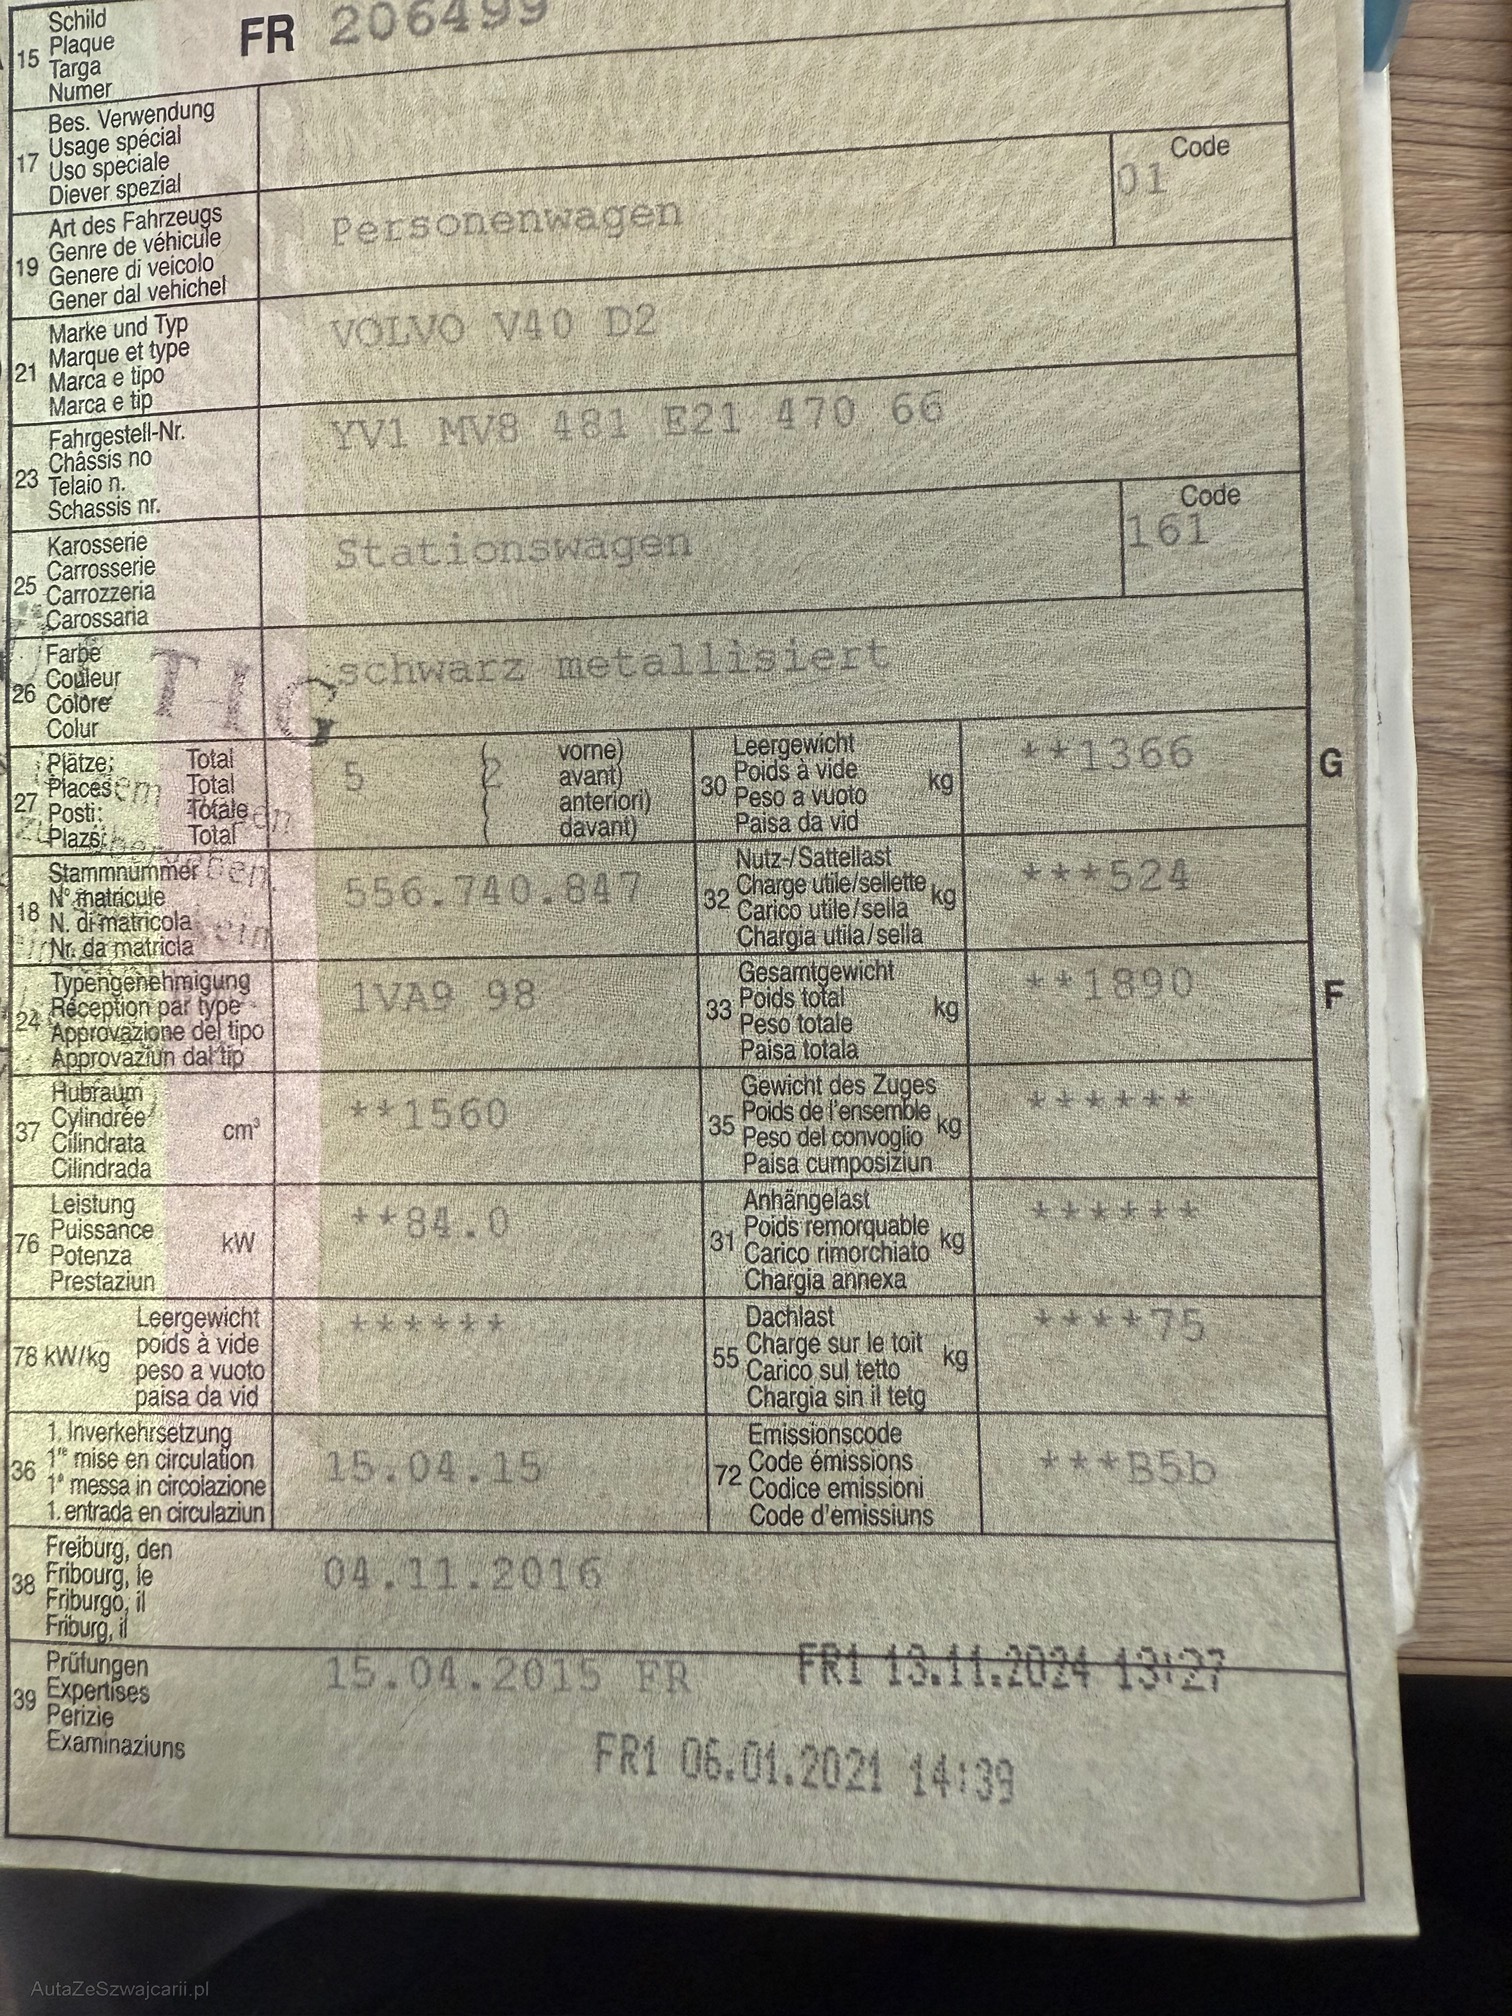 15 Schild
Plaque
Targa
Numer
FR 206499
17 Bes. Verwendung
Usage spécial
Uso speciale
Diever spezial
19 Art des Fahrzeugs
Genre de véhicule
Genere di veicolo
Gener dal vehichel
Personenwagen
Code
01
21 Marke und Typ
Marque et type
Marca e tipo
Marca e tip
VOLVO V40 D2
23 Fahrgestell-Nr.
Châssis no
Telaio n.
Schassis nr.
YV1 MV8 481 E21 470 66
25 Karosserie
Carrosserie
Carrozzeria
Carossaria
Stationswagen
Code
161
26 Farbe
Couleur
Colore
Colur
schwarz metallisiert
27 Plätze: Total
Places: Total
Posti: Totale
Plazs: Total
5 ( 2 vorne)
avant)
anteriori)
davant)
30 Leergewicht
Poids à vide
Peso a vuoto
Paisa da vid
kg
**1366
G
18 Stammnummer
N° matricule
N. di matricola
Nr. da matricla
556.740.847
32 Nutz-/Sattellast
Charge utile/sellette
Carico utile/sella
Chargia utila/sella
kg
***524
24 Typengenehmigung
Réception par type
Approvazione del tipo
Approvaziun dal tip
1VA9 98
33 Gesamtgewicht
Poids total
Peso totale
Paisa totala
kg
**1890
F
37 Hubraum
Cylindrée
Cilindrata
Cilindrada
cm³
**1560
35 Gewicht des Zuges
Poids de l'ensemble
Peso del convoglio
Paisa cumposiziun
kg
******
76 Leistung
Puissance
Potenza
Prestaziun
kW
**84.0
31 Anhängelast
Poids remorquable
Carico rimorchiato
Chargia annexa
kg
******
78 kW/kg
Leergewicht
poids à vide
peso a vuoto
paisa da vid
******
55 Dachlast
Charge sur le toit
Carico sul tetto
Chargia sin il tetg
kg
****75
36 1. Inverkehrsetzung
1re mise en circulation
1a messa in circolazione
1. entrada en circulaziun
15.04.15
72 Emissionscode
Code émissions
Codice emissioni
Code d'emissiuns
***B5b
38 Freiburg, den
Fribourg, le
Friburgo, il
Friburg, il
04.11.2016
39 Prüfungen
Expertises
Perizie
Examinaziuns
15.04.2015 FR
FR1 13.11.2024 13:27
FR1 06.01.2021 14:39
AutaZeSzwajcarii.pl